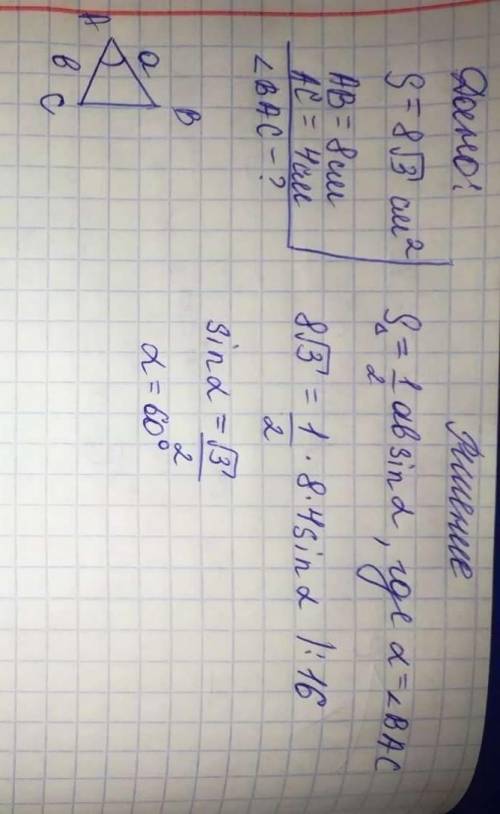 Дано:
S = 8√3 см²
AB = 8см
AC = 4см
∠BAC - ?
A
a
в
C
B
Решение
S△ = 1/2 ab sin α, где α = ∠BAC
8√3 = 1/2 · 8·4 sin α |:16
sin α = √3/2
α = 60°